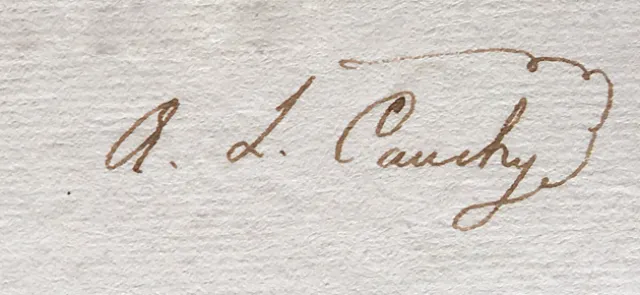 A. L. Cauchy